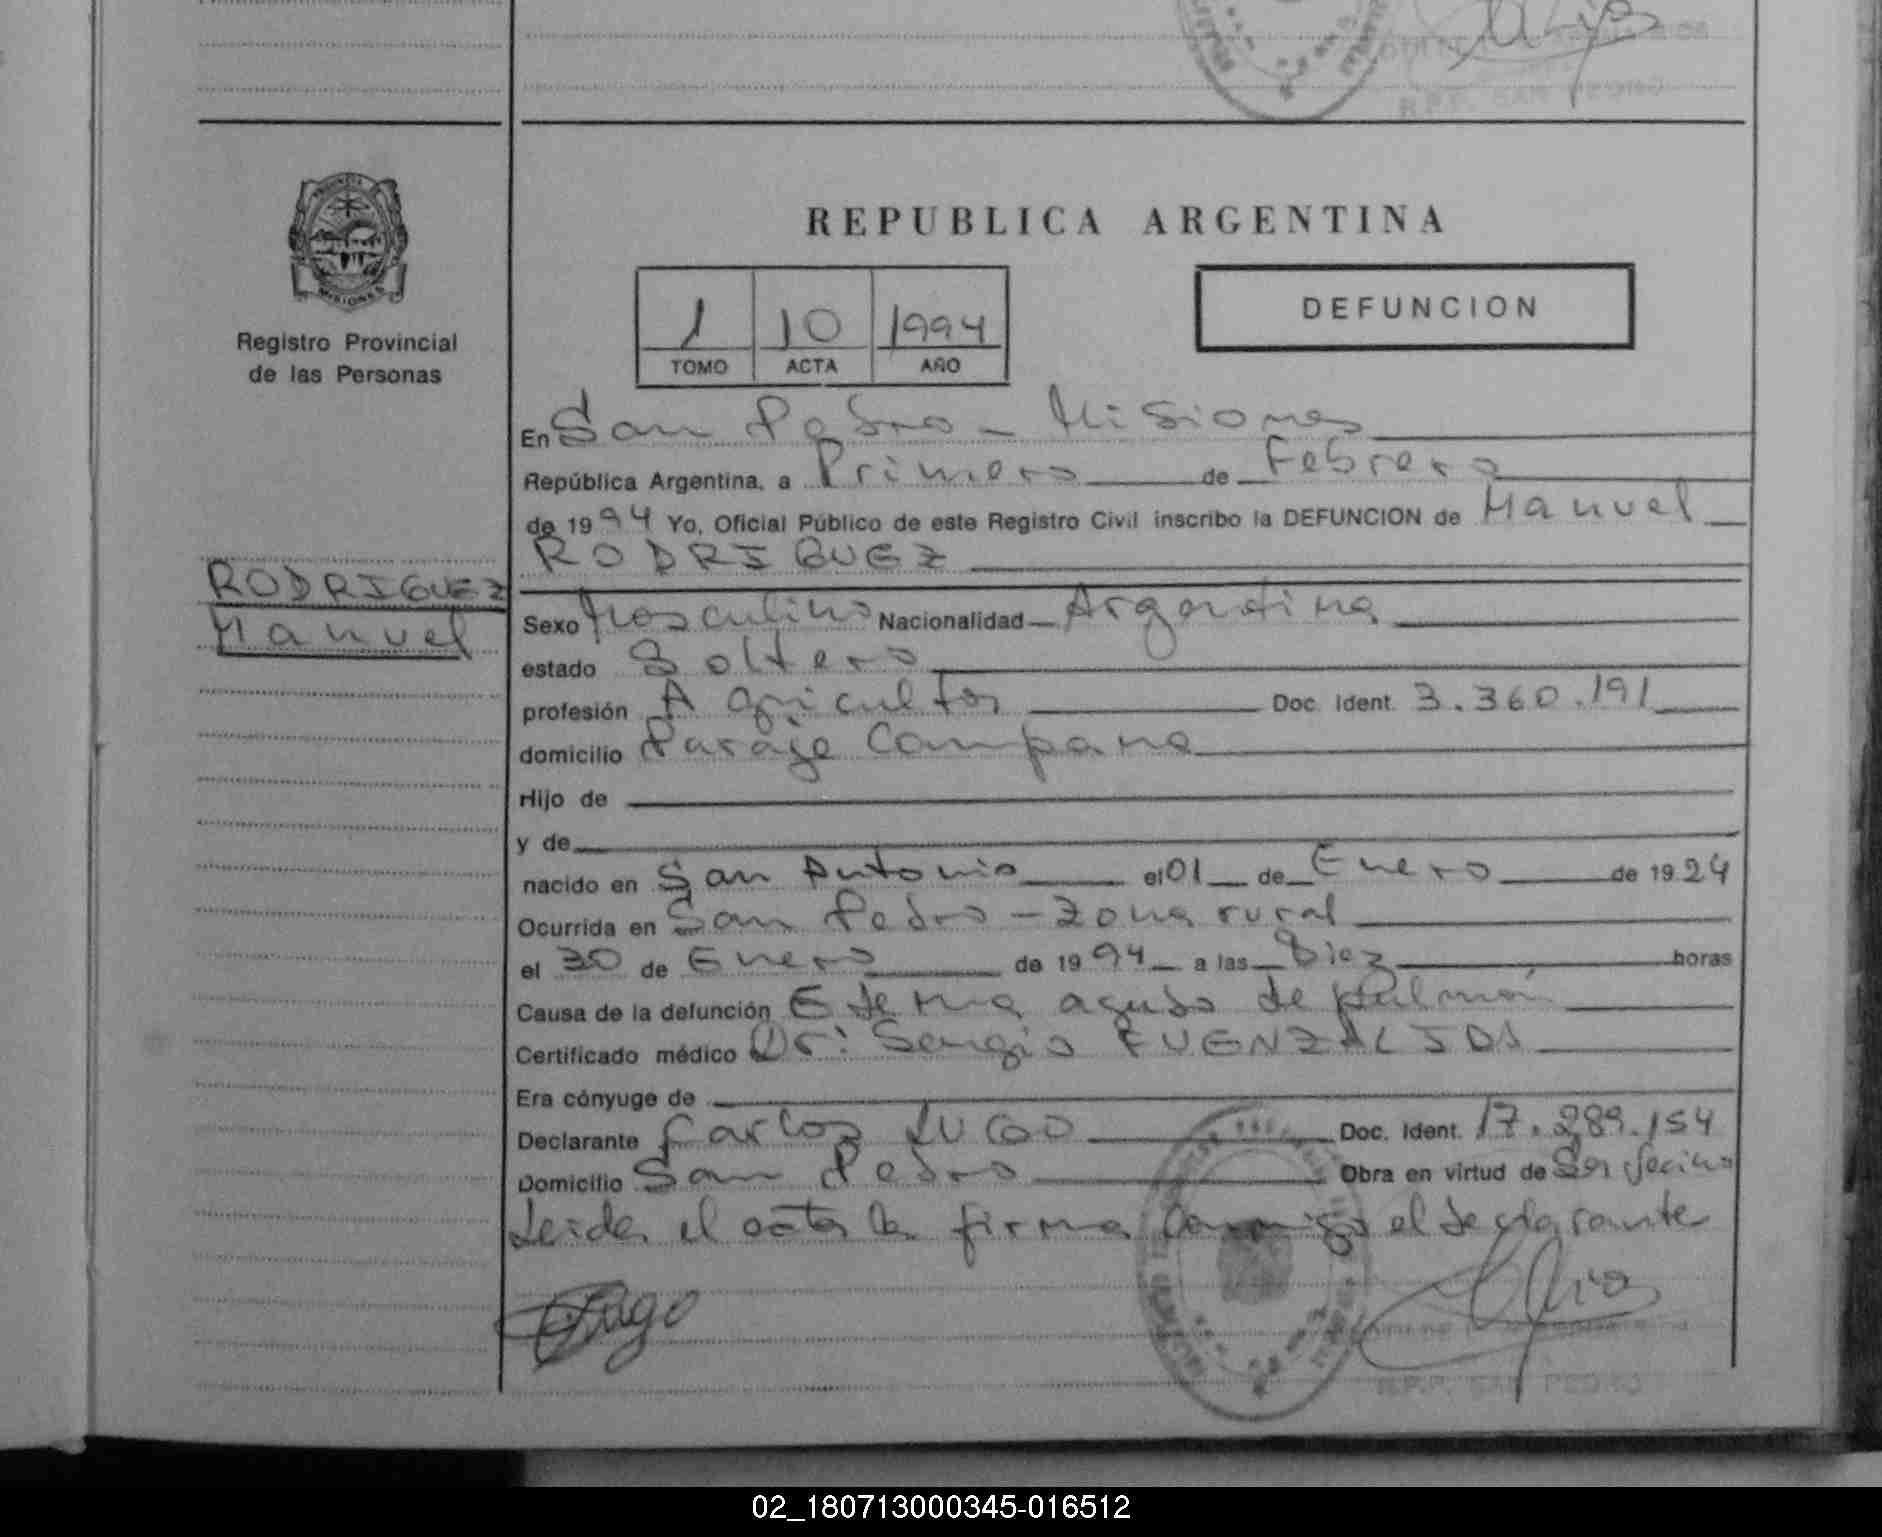 R.P.P. SAN PEDRO
REPUBLICA ARGENTINA
MISIONES
Registro Provincial
de las Personas
1 10 1994
TOMO ACTA AÑO
DEFUNCION
En San Pedro - Misiones
República Argentina, a Primero de Febrero
de 1994 Yo, Oficial Público de este Registro Civil inscribo la DEFUNCION de Manuel
RODRIGUEZ
RODRIGUEZ
Manuel
Sexo Masculino Nacionalidad Argentina
estado Soltero
profesión Agricultor Doc. Ident. 3.360.191
domicilio Paraje Campana
Hijo de
y de
nacido en San Antonio el 01 de Enero de 1924
Ocurrida en San Pedro - Zona rural
el 30 de Enero de 1994 a las Diez horas
Causa de la defunción Edema agudo de pulmón
Certificado médico Dr: Sergio FUENZALIDA
Era cónyuge de
Declarante Carlos LUGO Doc. Ident. 17.289.154
Domicilio San Pedro Obra en virtud de Ser vecino
Leida el acta la firma conmigo el declarante
Lugo
R.P.P. SAN PEDRO
02_180713000345-016512